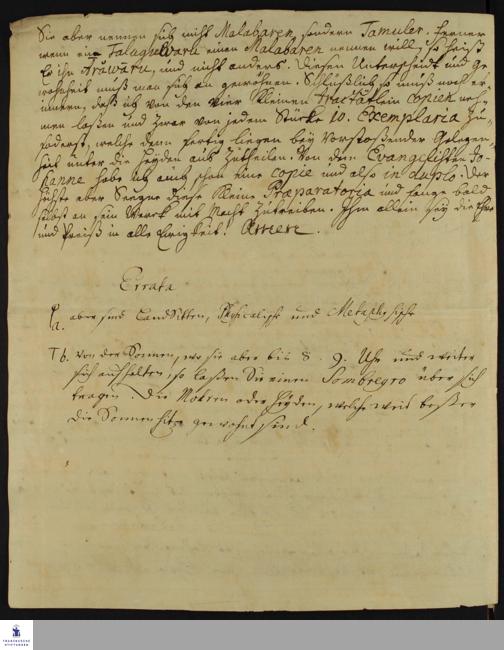 Sie aber nennen sich nicht Malabaren, sondern Tamuler. Ferner
wenn ein Talughewaru einen Malabaren nennen will, so heist
Er ihn Arawaru, und nicht anders. Diesen Unterscheidt und Ge
wohnheit muß man sich an gewöhnen. Schlüßlich so muß noch er
innern, daß ich von den vier kleinen Tractätlein Copien neh
men laßen und zwar von jedem Stücke 10. Exemplaria zu
, welche denn fertig liegen bey Vorstoßender Gelegen
heit unter die Heyden aus zutheilen. Von dem Evangelisten Jo
hanne habe ich auch schon eine Copie und also in duplo. Der
aber Seegne diese kleine Præparatoria und fange bald
selbst an sein Werck mit Macht zutreiben. Ihm allein sey die Ehre
und Preiß in alle Ewigkeit! Amen.
Errata
a. aber sind LandSitten, Physicalisch und Metaphysisch
b. von der Sonnen, wo sie aber bis 8. 9. Uhr und weiter
sich aufhalten, so laßen Sie einen Sombregro über sich
tragen. Die Mohren oder Heyden, welche weit beßer
die Sonnen hitze gewohnt sind.
FRANCKESCHE
STIFTUNGEN